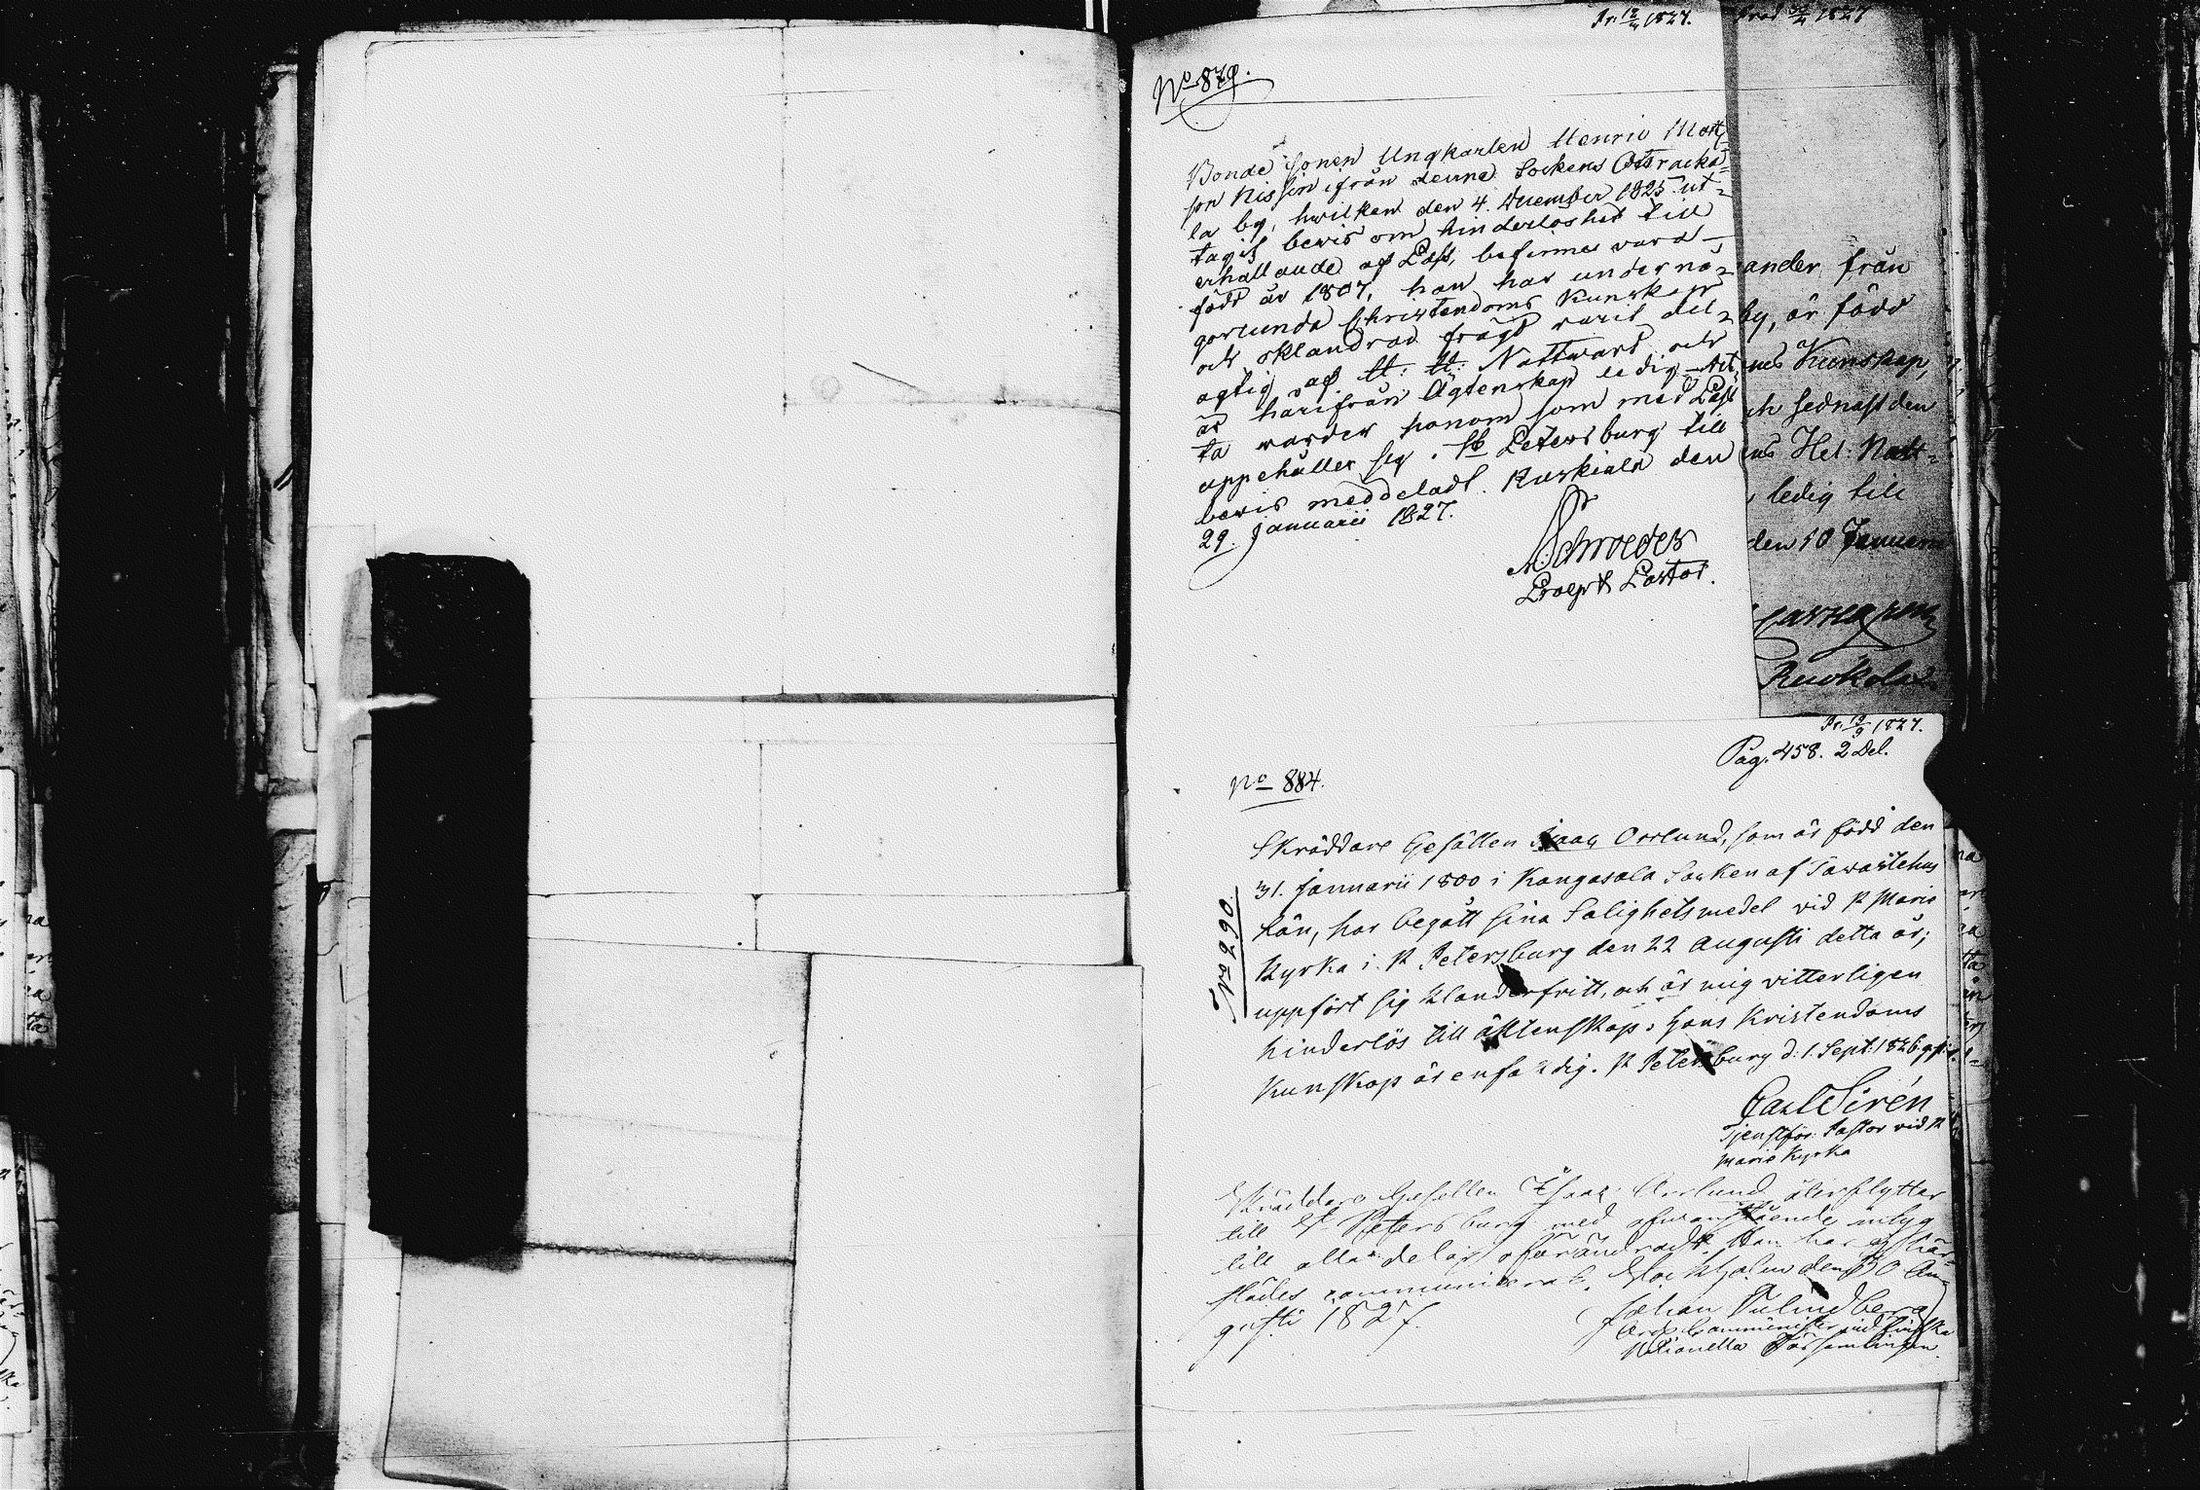 Pr. 12/4 1827.
No 879.
Bonde Sonen Ungkarlen Henric Matts
son Nissin ifrån denne Sockens Otsracka=
la by, hwilken den 4. December 1825 ut=
tagit bewis om hinderlöshet till
erhållande af Pass, befinnes vara
född år 1807, han har under nö=
gorlunda Christendoms Kunskap
och oklandrad frägd varit del=
agtig af H: H: Nattward och
är härifrån Ägtenskap ledig. Det,
ta warder honom som med Pass
uppehåller sig i St Petersburg till
bewis meddeladt. Ruskiala den
29. Januarii 1827.
Schroeder
Pastor.
1827
ander från
by, är född
ms Kunskap,
ch sednast den
Hel: Natt=
ledig till
den 10 Januarii
Ruokolax
Pr. 13/9 1827.
Pag. 458. 2 Del.
No 884.
No 290.
Skräddare Gesällen Isaac Orrlund, som är född den
31. Januarii 1800 i Kangasala Socken af Tawastehus
Län, har begått sina Salighetsmedel vid St Marie
Kyrka i St Petersburg den 22 Augusti detta år;
uppfört sig klanderfritt, och är mig vitterligen
hinderlös till äktenskap. Hans Kristendoms
Kunskap är enfaldig. St Petersburg d: 1. Sept: 1826
Carl Sirén
Tjenstför: Pastor vid St
Marie Kyrka
Skräddare Gesällen Isaac Orrlund återflyttar
till St Petersburg med ofwanstående intyg
till alla delar oförändradt. Han har ej här=
städes communicerat. Stockholm den 30 Au=
gusti 1827.
Johan
Ord. Comminister vid Finska
Nationella Församlingen.